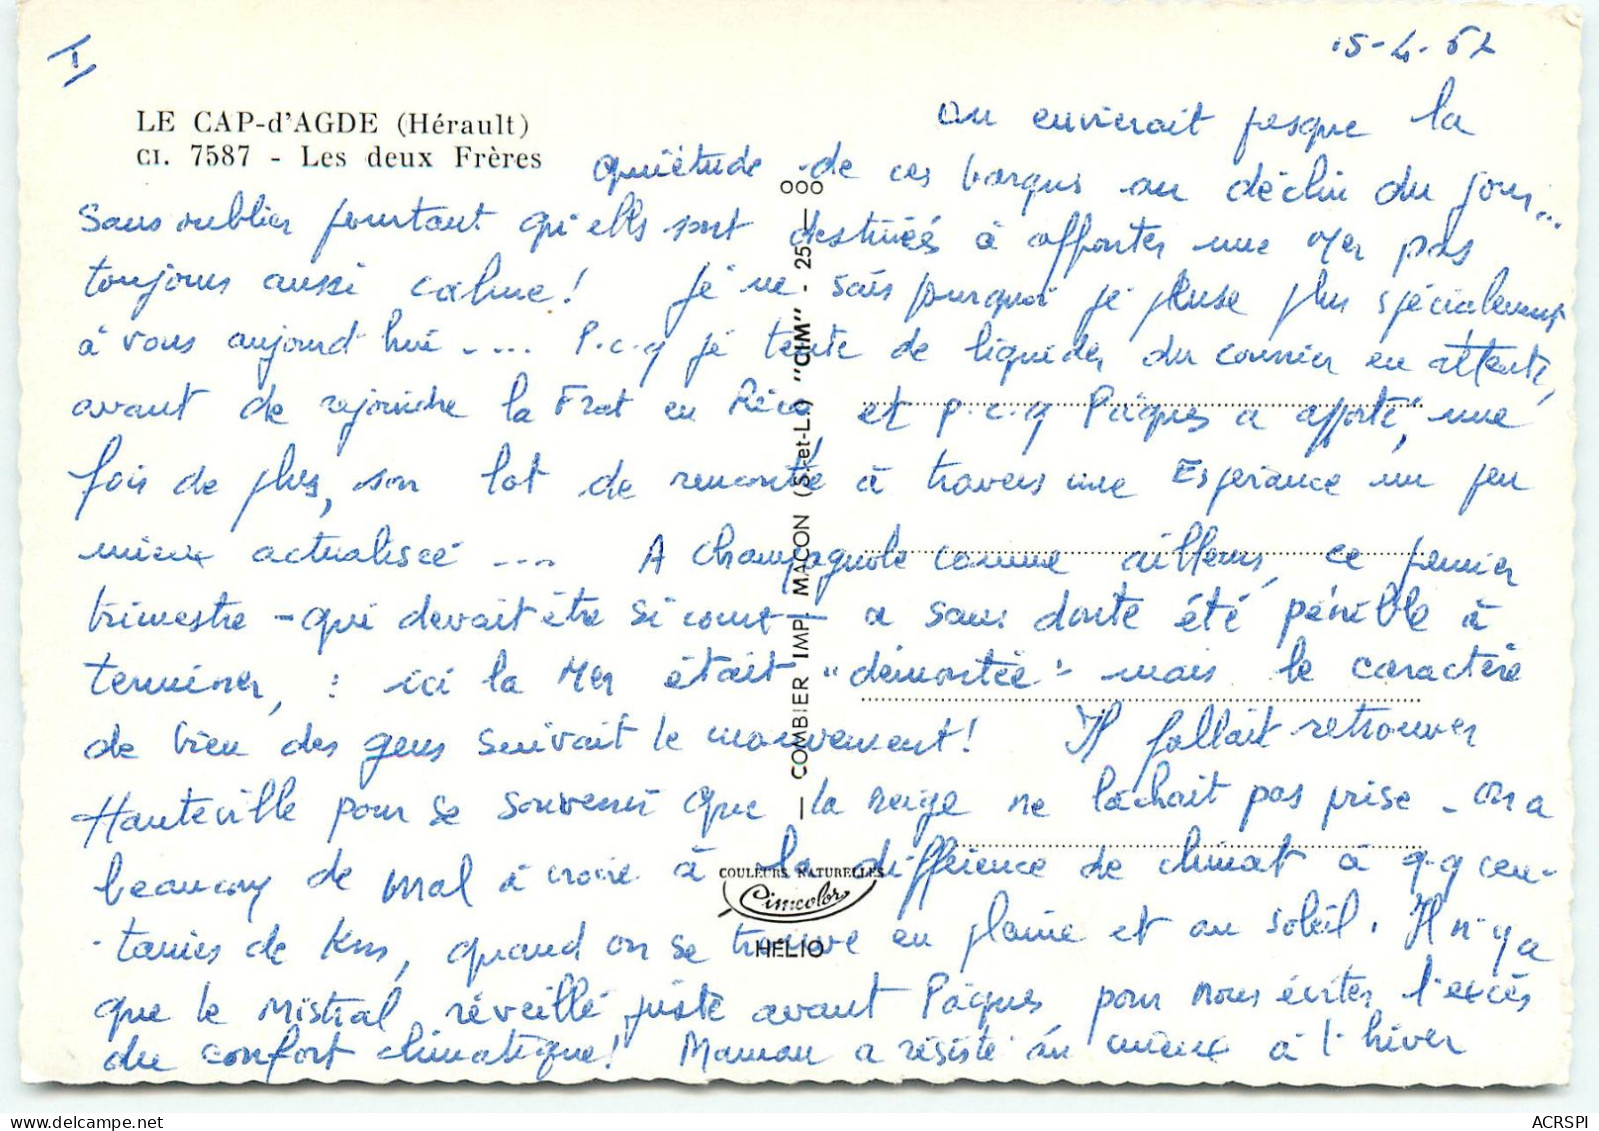 I
15-4-67
LE CAP-d'AGDE (Hérault)
CI. 7587 - Les deux Frères
on envierait presque la
quiétude de ces barques au déclin du jour...
Sans oublier pourtant qu'elles sont destinées à affronter une Mer pas
toujours aussi calme ! Je ne sais pourquoi je pense plus spécialement
à vous aujourd'hui - .... P.c.q je tente de liquider du courrier en attente,
avant de rejoindre la Frat en Réco et p.c.q Pâques a apporté, une
fois de plus, son lot de rencontre à travers une Espérance un peu
mieux actualisée ... A Champagnole comme ailleurs, ce premier
trimestre - qui devait être si court - a sans doute été pénible à
terminer, : ici la Mer était "démontée" mais le caractère
de bien des gens suivait le mouvement ! Il fallait retrouver
Hauteville pour se souvenir que la neige ne lâchait pas prise - on a
beaucoup de mal à croire à la différence de climat à q-q cen-
-taines de Kms, quand on se trouve en plaine et au soleil. Il n'y a
que le Mistral réveillé juste avant Pâques pour nous éviter l'excès
du confort climatique ! Maman a résisté au mieux à l'hiver
— COMBIER IMP. MACON (S.-et-L.) "CIM" - 25 — 000
COULEURS NATURELLES
Cimcolor
HÉLIO
ACRSPI